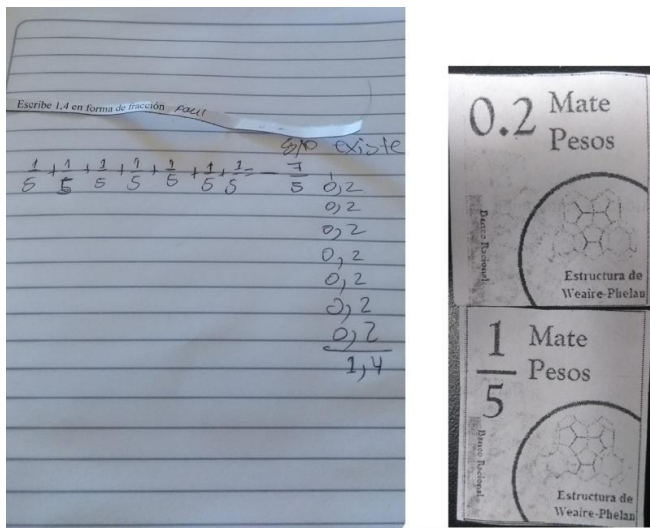 Escribe 1,4 en forma de fracción
existe
1/5 + 1/5 + 1/5 + 1/5 + 1/5 + 1/5 + 1/5 = 7/5
0,2
0,2
0,2
0,2
0,2
0,2
0,2
1,4
0.2 Mate
Pesos
Banco Racional
Estructura de
Weaire-Phelan
1/5 Mate
Pesos
Banco Racional
Estructura de
Weaire-Phelan